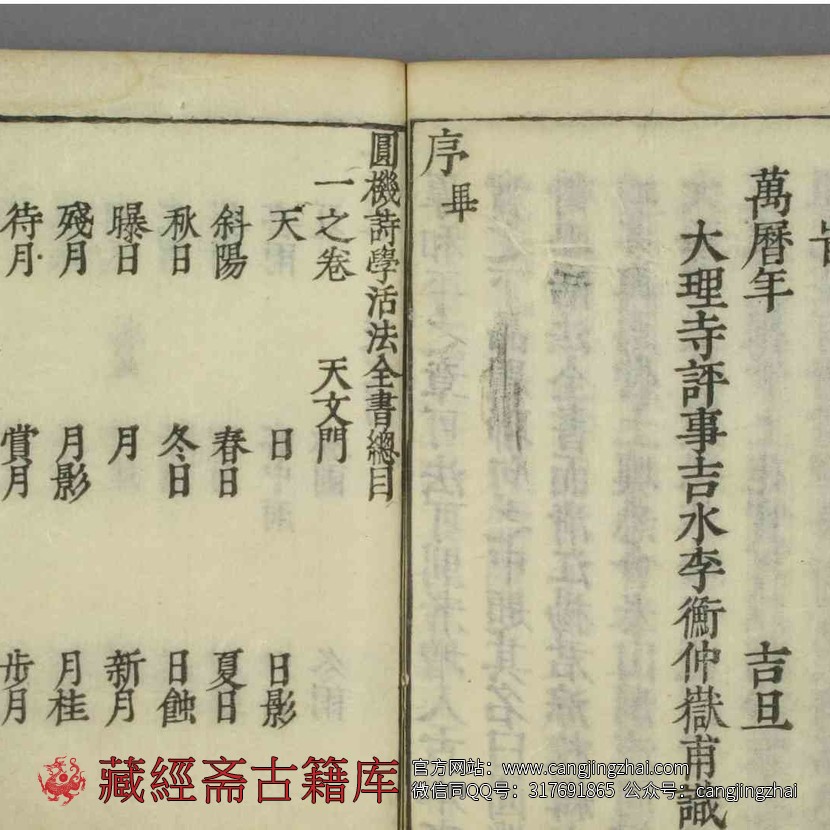 萬曆年 吉旦
大理寺評事吉水李衡仲嶽甫識
序畢
圓機詩學活法全書總目
一之卷 天文門
天 日 日影
斜陽 春日 夏日
秋日 冬日 日蝕
曝日 月 新月
殘月 月影 月桂
待月 賞月 步月
藏經斋古籍库
官方网站：www.cangjingzhai.com
微信同QQ号：317691865 公众号：cangjingzhai